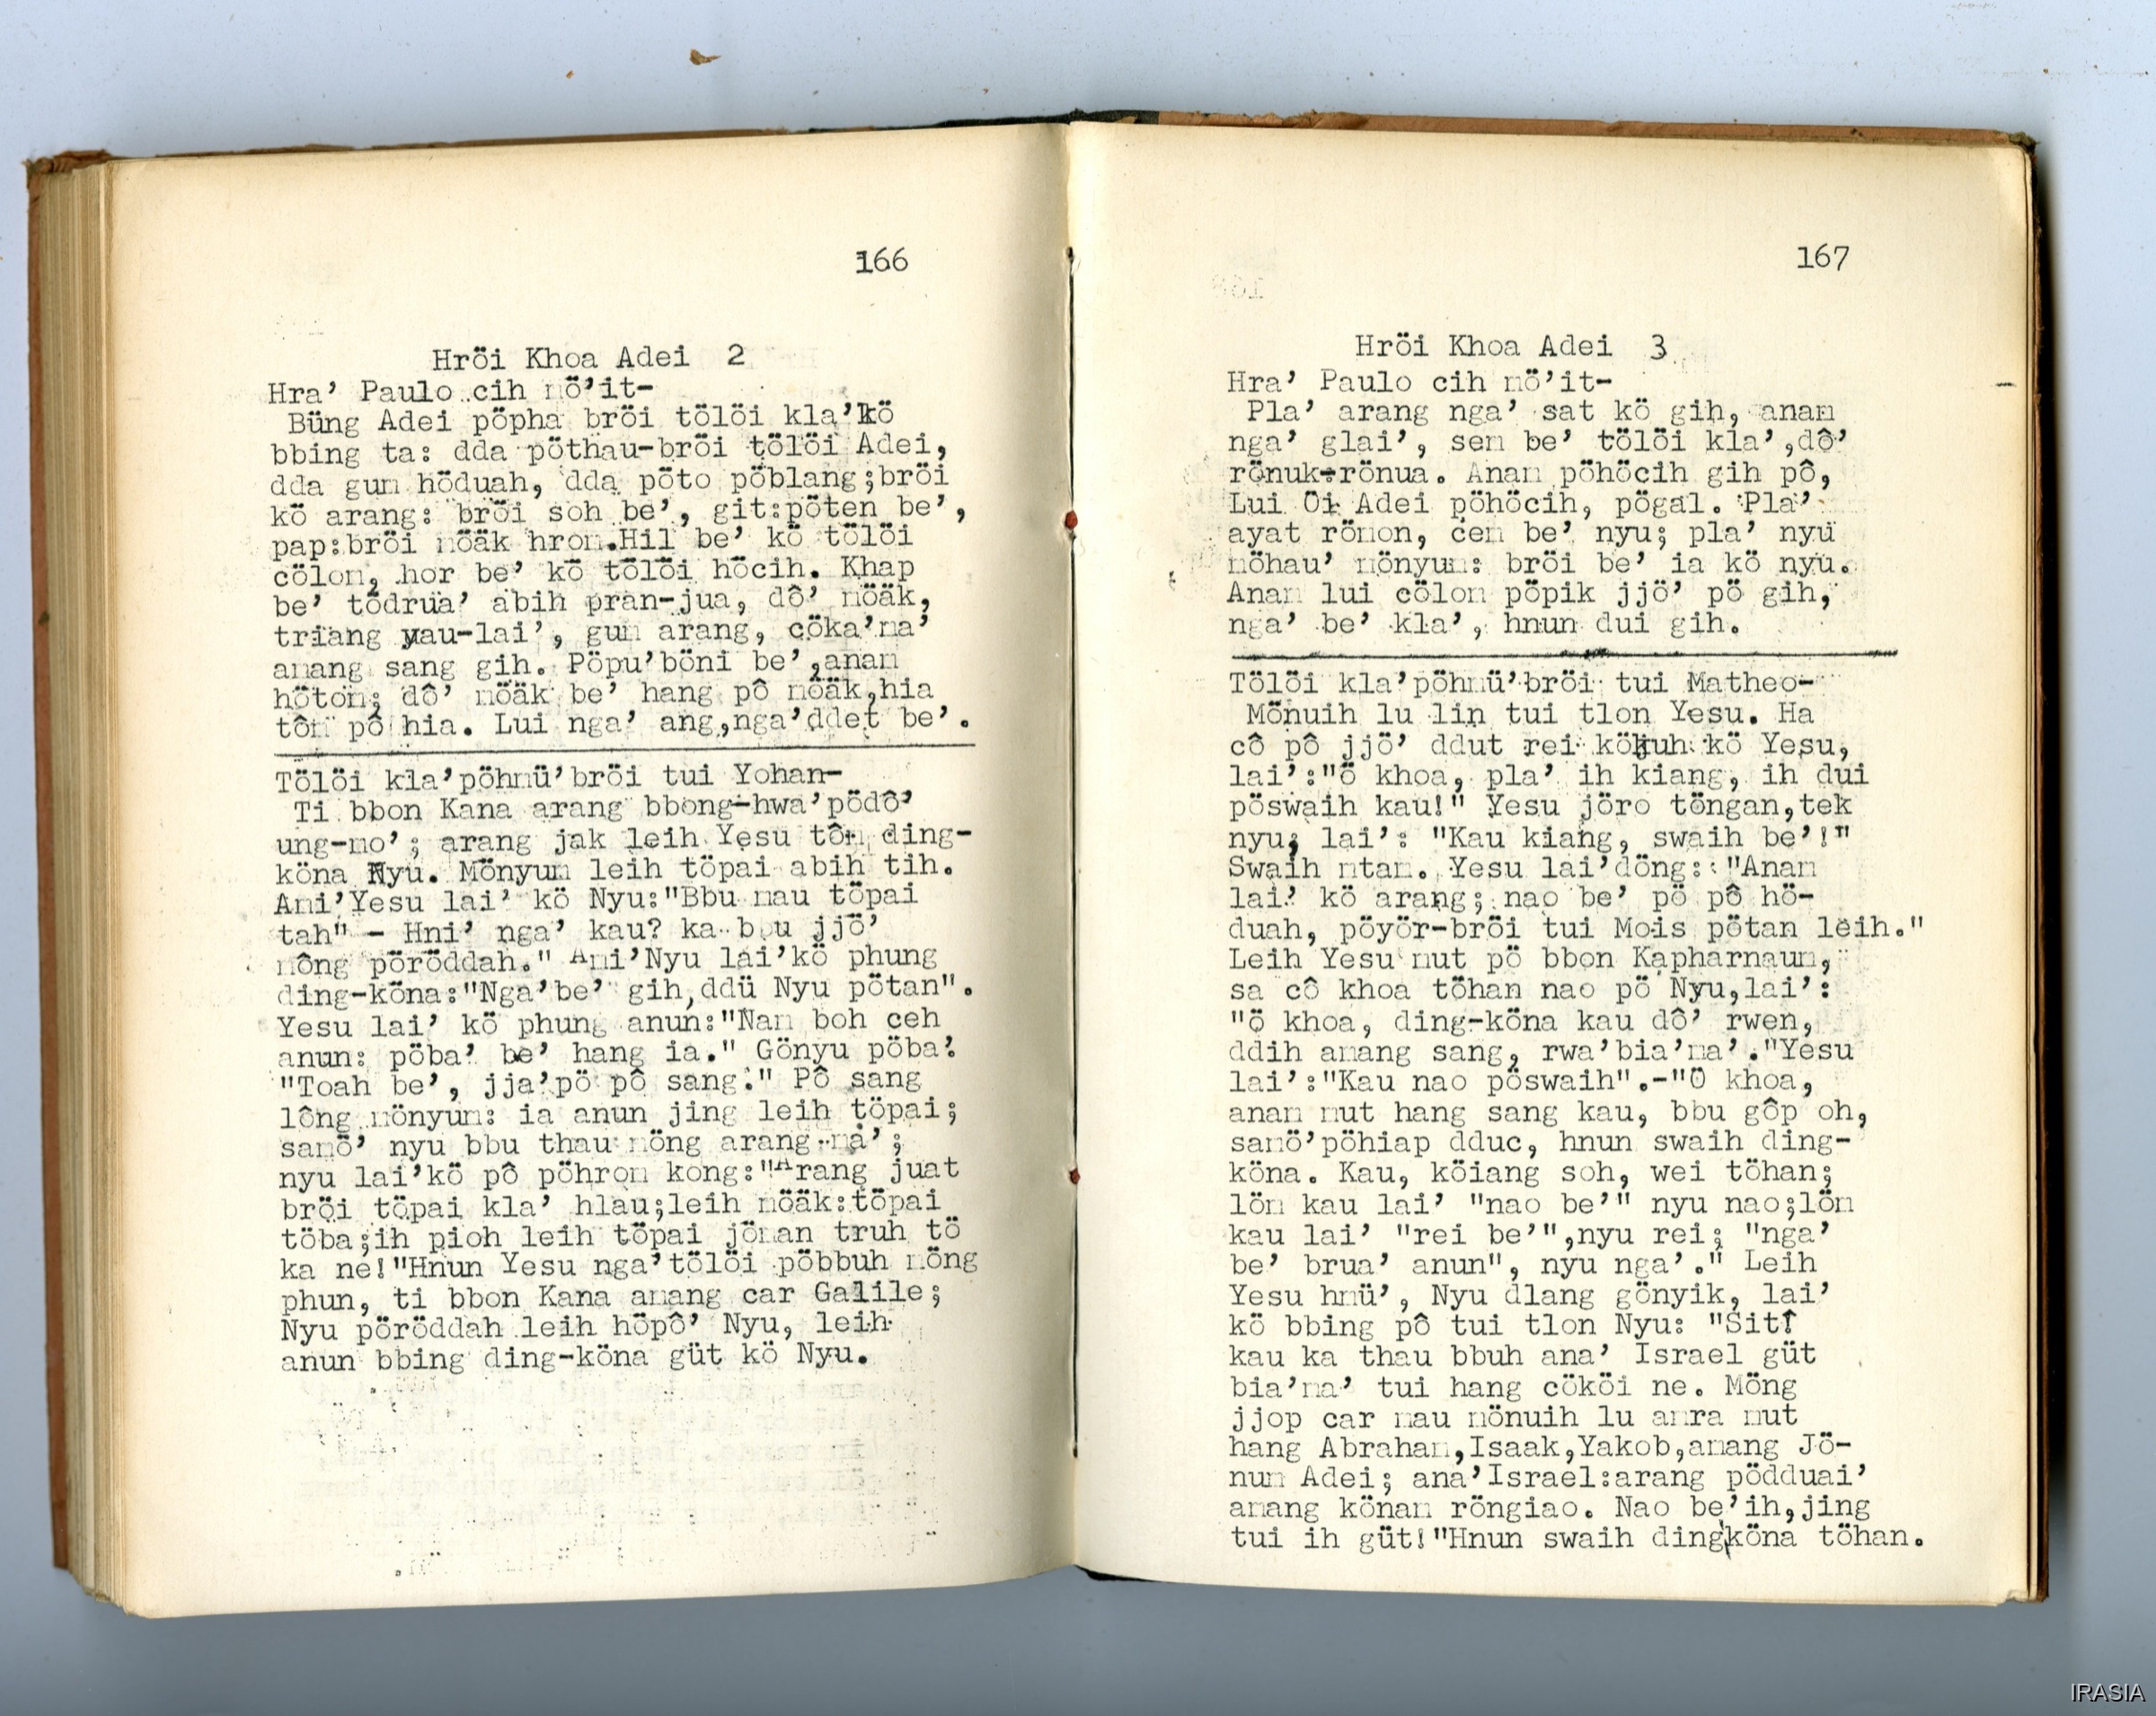 166
Hröi Khoa Adei 2
Hra’ Paulo cih mö’it-
Büng Adei pöpha bröi tölöi kla’kö
bbing ta: dda pöthau-bröi tölöi Adei,
dda gum höduah, dda pöto pöblang;bröi
kö arang: bröi soh be’, git:pöten be’,
pap:bröi möäk hrom.Hil be’ kö tölöi
cölom, hor be’ kö tölöi höcih. Khap
be’ tödrua’ abih pran-jua, dô’ möäk,
triang yau-lai’, gum arang, cöka’ma’
amang sang gih. Pöpu’böni be’,anam
hötom; dô’ möäk be’ hang pô möäk,hia
tôm pô hia. Lui nga’ ang,nga’ddet be’.
Tölöi kla’pöhmü’bröi tui Yohan-
Ti bbon Kana arang bbong-hwa’pödô’
ung-mo’; arang jak leih Yesu tôm ding-
köna Nyu. Mönyum leih töpai abih tih.
Ami’Yesu lai’ kö Nyu:"Bbu mau töpai
tah" - Hni’ nga’ kau? ka bbu jjö’
mông pöröddah." Ami’Nyu lai’kö phung
ding-köna:"Nga’be’ gih,ddü Nyu pötan".
Yesu lai’ kö phung anun:"Nam boh ceh
anun: pöba’ be’ hang ia." Gönyu pöba’.
"Toah be’, jja’pö pô sang." Pô sang
lông mönyum: ia anun jing leih töpai;
samö’ nyu bbu thau möng arang ma’;
nyu lai’kö pô pöhrom kong:"Arang juat
bröi töpai kla’ hlau;leih möäk:töpai
töba;ih pioh leih töpai jöman truh tö
ka ne!"Hnun Yesu nga’tölöi pöbbuh möng
phun, ti bbon Kana amang car Galile;
Nyu pöröddah leih höpô’ Nyu, leih
anun bbing ding-köna güt kö Nyu.
167
Hröi Khoa Adei 3
Hra’ Paulo cih mö’it-
Pla’ arang nga’ sat kö gih, anam
nga’ glai’, sem be’ tölöi kla’,dô’
rönuk-rönua. Anam pöhöcih gih pô,
Lui Oi Adei pöhöcih, pögal. Pla’
ayat römon, cem be’ nyu; pla’ nyu
möhau’ mönyum: bröi be’ ia kö nyu.
Anam lui cölom pöpik jjö’ pö gih,
nga’ be’ kla’, hnun dui gih.
Tölöi kla’pöhmü’bröi tui Matheo-
Mönuih lu lin tui tlon Yesu. Ha
cô pô jjö’ ddut rei kökuh kö Yesu,
lai’:"Ö khoa, pla’ ih kiang, ih dui
pöswaih kau!" Yesu jöro töngan,tek
nyu; lai’: "Kau kiang, swaih be’!"
Swaih mtam. Yesu lai’döng: "Anam
lai’ kö arang; nao be’ pö pô hö-
duah, pöyör-bröi tui Mois pötan leih."
Leih Yesu mut pö bbon Kapharnaum,
sa cô khoa töhan nao pö Nyu,lai’:
"Ö khoa, ding-köna kau dô’ rwen,
ddih amang sang, rwa’bia’ma’."Yesu
lai’:"Kau nao pöswaih".-"Ö khoa,
anam mut hang sang kau, bbu gôp oh,
samö’pöhiap dduc, hnun swaih ding-
köna. Kau, köiang soh, wei töhan;
löm kau lai’ "nao be’" nyu nao;löm
kau lai’ "rei be’",nyu rei; "nga’
be’ brua’ anun", nyu nga’." Leih
Yesu hmü’, Nyu dlang gönyik, lai’
kö bbing pô tui tlon Nyu: "Sit!
kau ka thau bbuh ana’ Israel güt
bia’ma’ tui hang cököi ne. Möng
jjop car mau mönuih lu amra mut
hang Abraham,Isaak,Yakob,amang Jö-
num Adei; ana’Israel:arang pödduai’
amang könam röngiao. Nao be’ih,jing
tui ih güt!"Hnun swaih dingköna töhan.
IRASIA